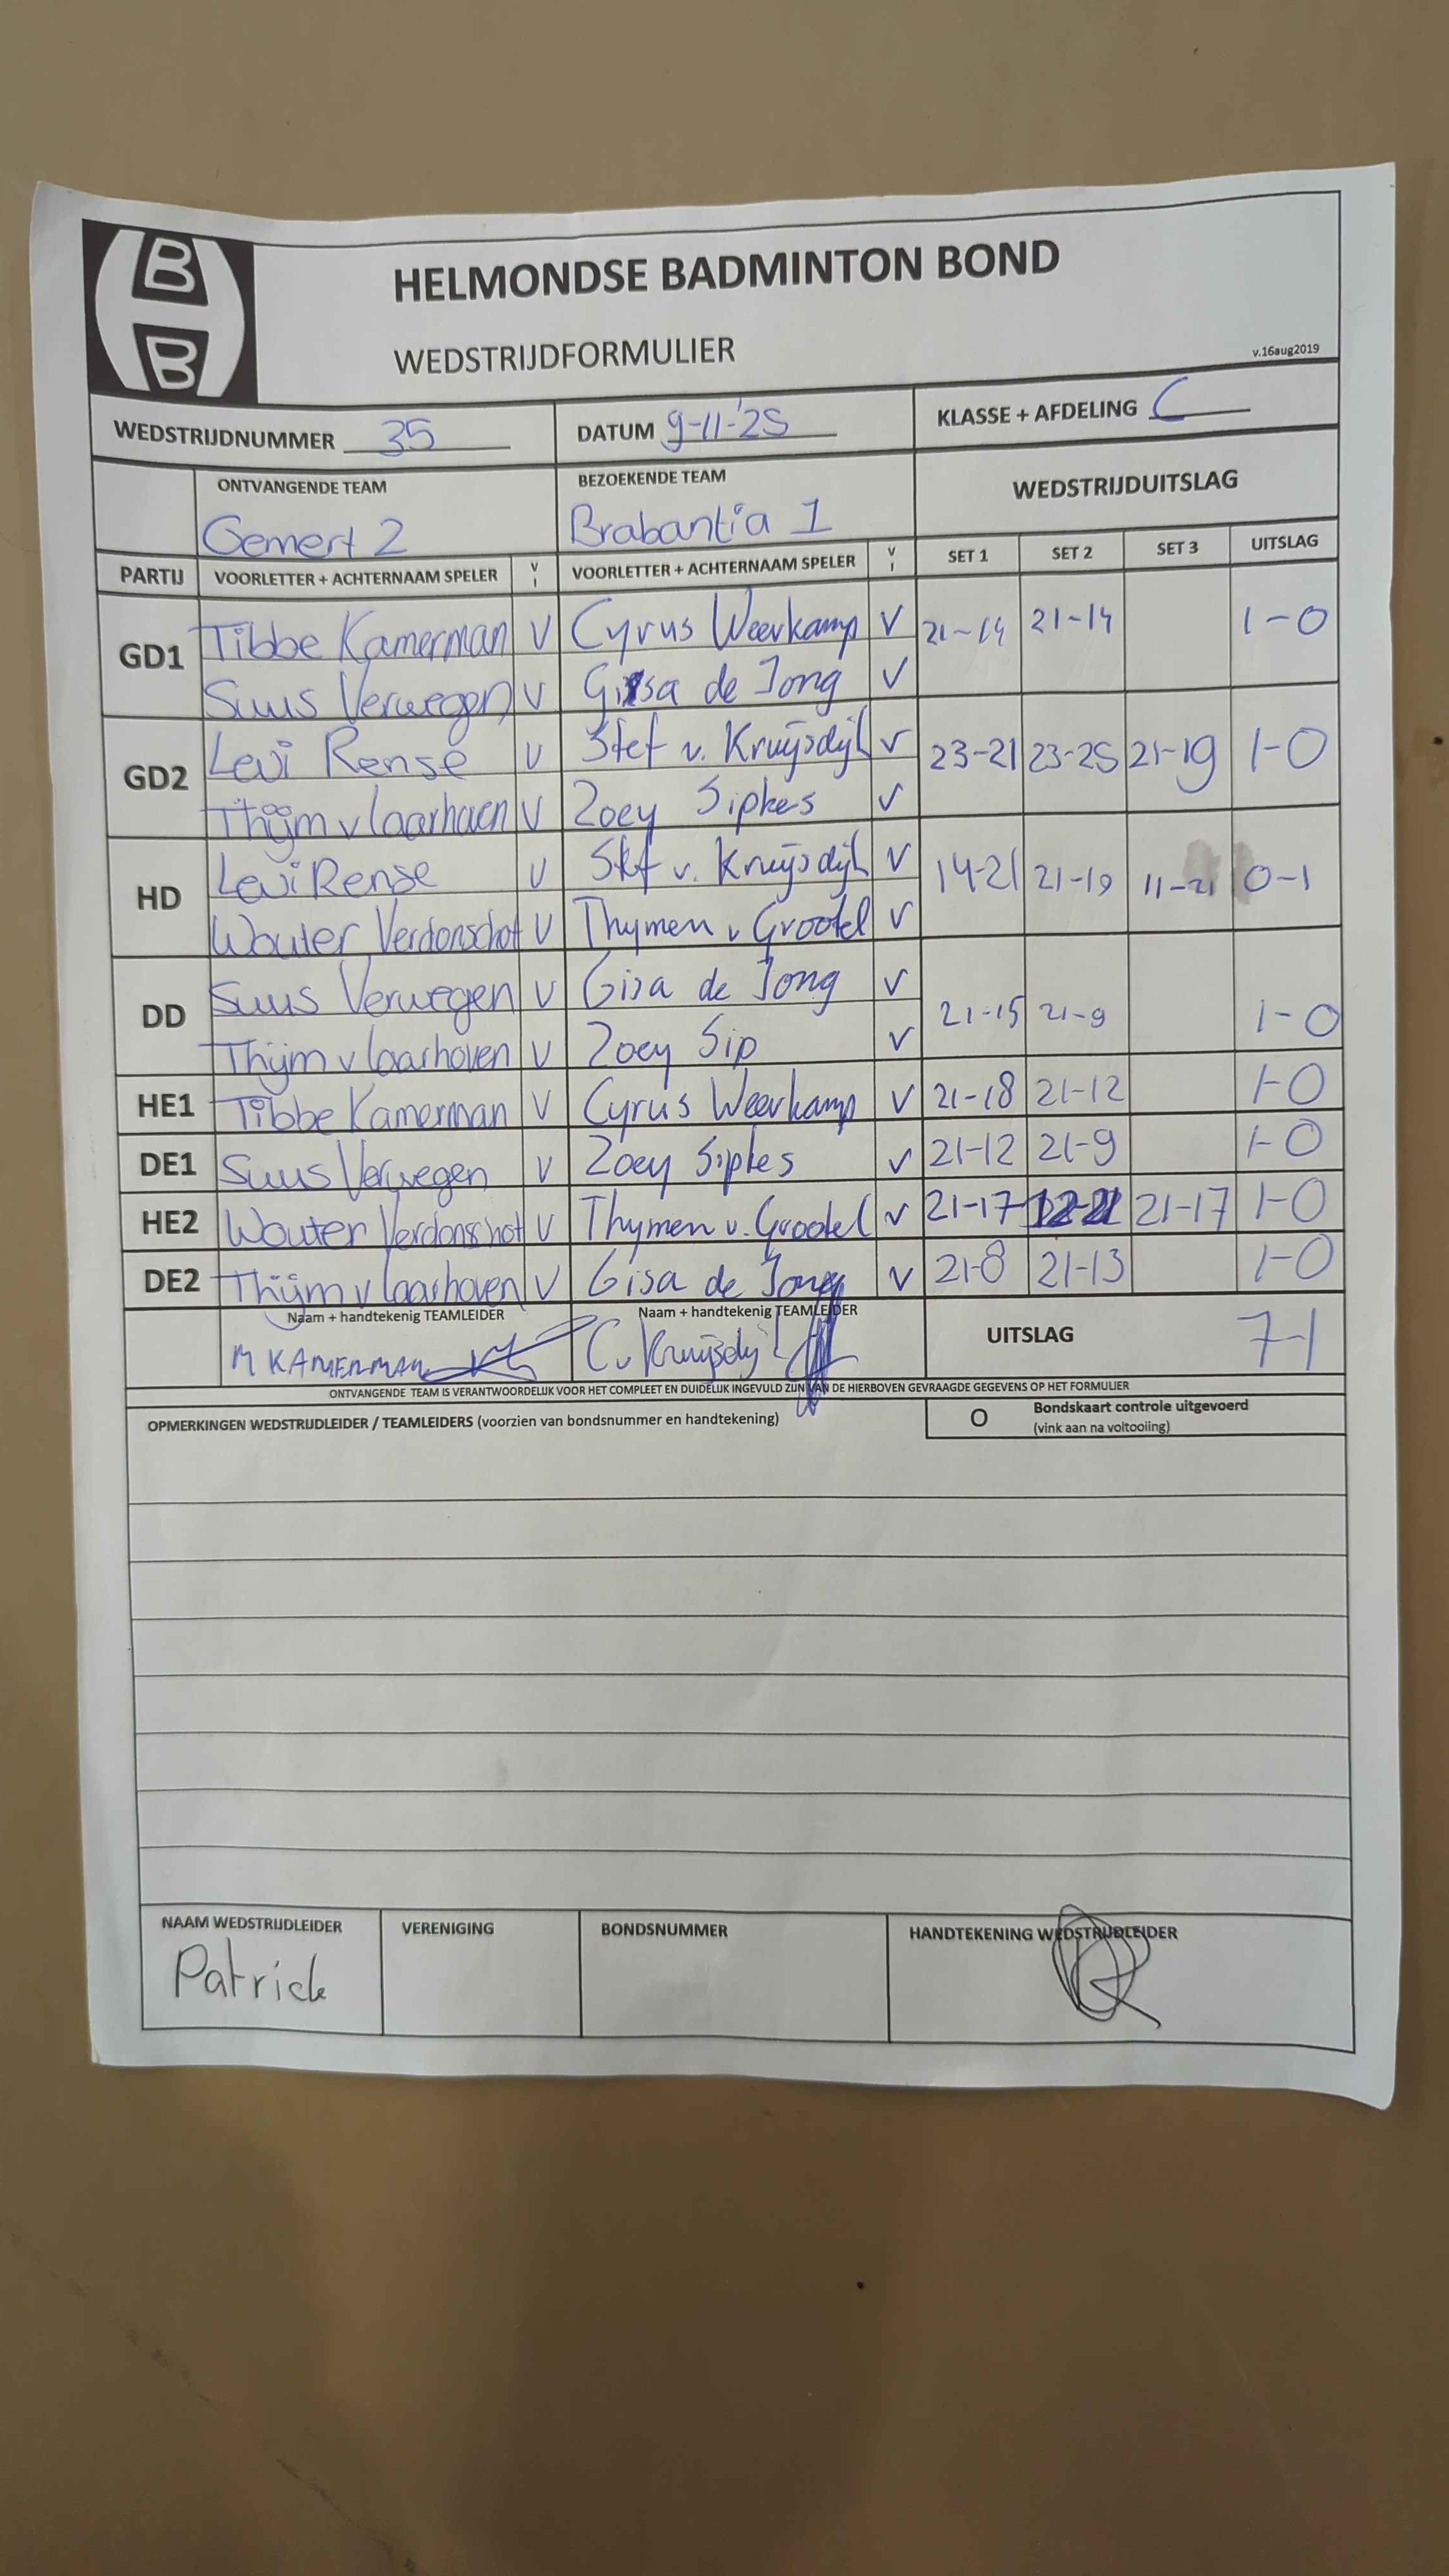 B
B
HELMONDSE BADMINTON BOND
WEDSTRIJDFORMULIER
v.16aug2019
WEDSTRIJDNUMMER 35 DATUM 9-11-'25 KLASSE + AFDELING C
ONTVANGENDE TEAM BEZOEKENDE TEAM WEDSTRIJDUITSLAG
Gemert 2 Brabantia 1
PARTIJ VOORLETTER + ACHTERNAAM SPELER V I VOORLETTER + ACHTERNAAM SPELER V I SET 1 SET 2 SET 3 UITSLAG
GD1 Tibbe Kamerman V Cyrus Weerkamp V 21-14 21-14 1-0
Suus Verwegen V Gisa de Jong V
GD2 Levi Rense V Stef v. Kruijsdijk V 23-21 23-25 21-19 1-0
Thijm v Laarhoven V Zoey Sipkes V
HD Levi Rense V Stef v. Kruijsdijk V 14-21 21-19 11-21 0-1
Wouter Verdonschot V Thymen v Grootel V
DD Suus Verwegen V Gisa de Jong V 21-15 21-9 1-0
Thijm v Laarhoven V Zoey Sip V
HE1 Tibbe Kamerman V Cyrus Weerkamp V 21-18 21-12 1-0
DE1 Suus Verwegen V Zoey Sipkes V 21-12 21-9 1-0
HE2 Wouter Verdonschot V Thymen v. Grootel V 21-17 12-21 21-17 1-0
DE2 Thijm v Laarhoven V Gisa de Jong V 21-8 21-13 1-0
Naam + handtekenig TEAMLEIDER Naam + handtekenig TEAMLEIDER UITSLAG 7-1
M KAMERMAN C v Kruijsdijk
ONTVANGENDE TEAM IS VERANTWOORDELIJK VOOR HET COMPLEET EN DUIDELIJK INGEVULD ZIJN VAN DE HIERBOVEN GEVRAAGDE GEGEVENS OP HET FORMULIER
OPMERKINGEN WEDSTRIJDLEIDER / TEAMLEIDERS (voorzien van bondsnummer en handtekening) O Bondskaart controle uitgevoerd
(vink aan na voltooiing)
NAAM WEDSTRIJDLEIDER VERENIGING BONDSNUMMER HANDTEKENING WEDSTRIJDLEIDER
Patrick